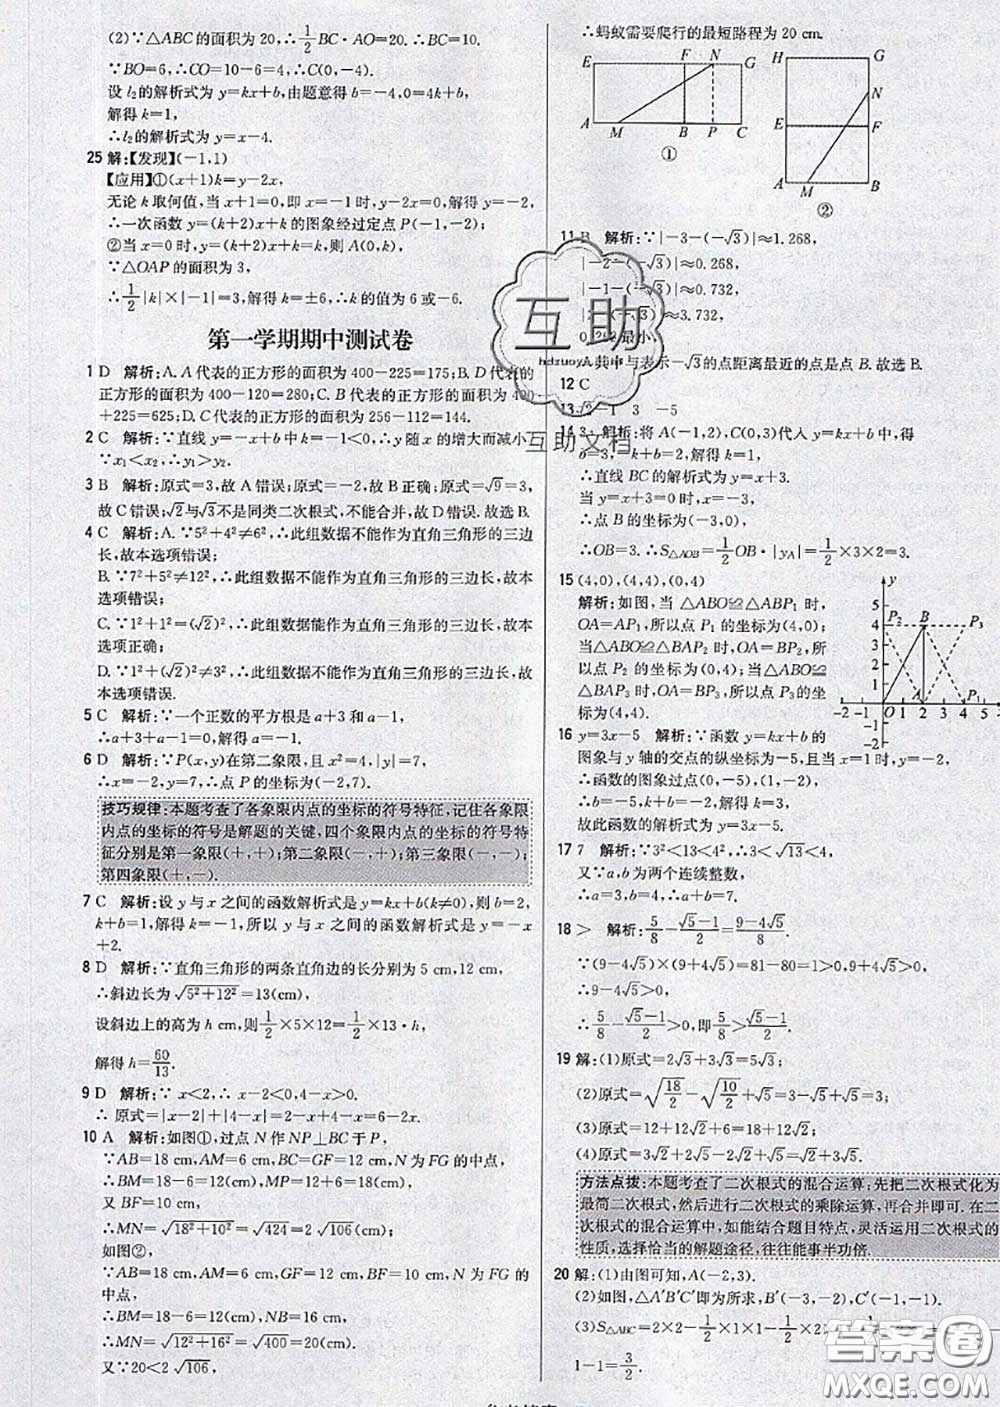 (2)∵△ABC的面积为20,∴1/2BC·AO=20.∴BC=10.
∵BO=6,∴CO=10-6=4,∴C(0,-4).
设l₂的解析式为y=kx+b,由题意得b=-4,0=4k+b,
解得k=1,
∴l₂的解析式为y=x-4.
25 解:【发现】(-1,1)
【应用】①(x+1)k=y-2x,
无论k取何值,当x+1=0,即x=-1时,y-2x=0,解得y=-2,
∴一次函数y=(k+2)x+k的图象经过定点P(-1,-2);
②当x=0时,y=(k+2)x+k=k,则A(0,k),
∵△OAP的面积为3,
∴1/2|k|×|-1|=3,解得k=±6,∴k的值为6或-6.
第一学期期中测试卷
1 D 解析:A.A代表的正方形的面积为400-225=175;B.D代表的
正方形的面积为400-120=280;C.B代表的正方形的面积为400
+225=625;D.C代表的正方形的面积为256-112=144.
2 C 解析:∵直线y=-x+b中k=-1<0,∴y随x的增大而减小.
∵x₁<x₂,∴y₁>y₂.
3 B 解析:原式=3,故A错误;原式=-2,故B正确;原式=√9=3,
故C错误;√2与√3不是同类二次根式,不能合并,故D错误.故选B.
4 C 解析:A.∵5²+4²≠6²,∴此组数据不能作为直角三角形的三边
长,故本选项错误;
B.∵7²+5²≠12²,∴此组数据不能作为直角三角形的三边长,故本
选项错误;
C.∵1²+1²=(√2)²,∴此组数据能作为直角三角形的三边长,故本
选项正确;
D.∵1²+(√2)²≠3²,∴此组数据不能作为直角三角形的三边长,故
本选项错误.
5 C 解析:∵一个正数的平方根是a+3和a-1,
∴a+3+a-1=0,解得a=-1.
6 D 解析:∵P(x,y)在第二象限,且x²=4,|y|=7,
∴x=-2,y=7,∴点P的坐标为(-2,7).
技巧规律:本题考查了各象限内点的坐标的符号特征,记住各象限
内点的坐标的符号是解题的关键,四个象限内点的坐标的符号特
征分别是第一象限(+,+);第二象限(-,+);第三象限(-,-);
第四象限(+,-).
7 C 解析:设y与x之间的函数解析式是y=kx+b(k≠0),则b=2,
k+b=1,解得k=-1,所以y与x之间的函数解析式是y=-x
+2.
8 D 解析:∵直角三角形的两条直角边的长分别为5 cm,12 cm,
∴斜边长为√(5²+12²)=13(cm),
设斜边上的高为h cm,则1/2×5×12=1/2×13·h,
解得h=60/13.
9 D 解析:∵x<2,∴x-2<0,4-x>0.
∴原式=|x-2|+|4-x|=2-x+4-x=6-2x.
10 A 解析:如图①,过点N作NP⊥BC于P,
∵AB=18 cm,AM=6 cm,BC=GF=12 cm,N为FG的中点,
∴BM=18-6=12(cm),MP=12+6=18(cm),
又BF=10 cm,
∴MN=√(18²+10²)=√424=2√106(cm);
如图②,
∵AB=18 cm,AM=6 cm,GF=12 cm,BF=10 cm,N为FG的
中点,
∴BM=18-6=12(cm),NB=16 cm,
∴MN=√(12²+16²)=√400=20(cm),
又∵20<2√106,
∴蚂蚁需要爬行的最短路程为20 cm.
E F N G H G
N
E F
A M B P C A M B
① ②
11 B 解析:∵|-3-(-√3)|≈1.268,
|-2-(-√3)|≈0.268,
|-1-(-√3)|≈0.732,
|2-(-√3)|≈3.732,
0.268最小,
∴其中与表示-√3的点距离最近的点是点B.故选B.
12 C
13 √2-1 3 -5
14 3 解析:将A(-1,2),C(0,3)代入y=kx+b中,得
b=3,-k+b=2,解得k=1,
∴直线BC的解析式为y=x+3.
当y=x+3=0时,x=-3,
∴点B的坐标为(-3,0),
∴OB=3.∴S△AOB=1/2OB·|yA|=1/2×3×2=3.
15 (4,0),(4,4),(0,4)
解析:如图,当△ABO≌△ABP₁时,
OA=AP₁,所以点P₁的坐标为(4,0);
当△ABO≌△BAP₂时,OA=BP₂,所
以点P₂的坐标为(0,4);当△ABO≌
△BAP₃时,OA=BP₃,所以点P₃的坐
标为(4,4).
y 5 4 3 2 1 -1 -2 P₂ B P₃ -2 -1 O 1 2 3 4 5 x A P₁
16 y=3x-5 解析:∵函数y=kx+b的
图象与y轴的交点的纵坐标为-5,且当x=1时,y=-2,
∴函数的图象过点(0,-5),(1,-2),
∴b=-5,k+b=-2,∴k=3.
故此函数的解析式为y=3x-5.
17 7 解析:∵3²<13<4²,∴3<√13<4,
又∵a,b为两个连续整数,
∴a=3,b=4,∴a+b=7.
18 > 解析:5/8-(√5-1)/2=(9-4√5)/8.
∵(9-4√5)×(9+4√5)=81-80=1>0,9+4√5>0,
∴9-4√5>0,
∴5/8-(√5-1)/2>0,即5/8>(√5-1)/2.
19 解:(1)原式=2√3+3√3=5√3;
(2)原式=√(18/2)-√(10/2)+√5=3-√5+√5=3;
(3)原式=12+12√2+6=18+12√2;
(4)原式=3√5+2√2-5√2+√5=4√5-3√2.
方法点拨:本题考查了二次根式的混合运算:先把二次根式化为
最简二次根式,然后进行二次根式的乘除运算,再合并即可.在二
次根式的混合运算中,如能结合题目特点,灵活运用二次根式的
性质,选择恰当的解题途径,往往能事半功倍.
20 解:(1)由图可知,A(-2,3).
(2)如图,△A'B'C'即为所求,B'(-3,-2),C'(-1,-1).
(3)S△ABC=2×2-1/2×1×1-
1-1=3/2.
互助
hdzuoye
互助文档
答案圈
MXQE.COM